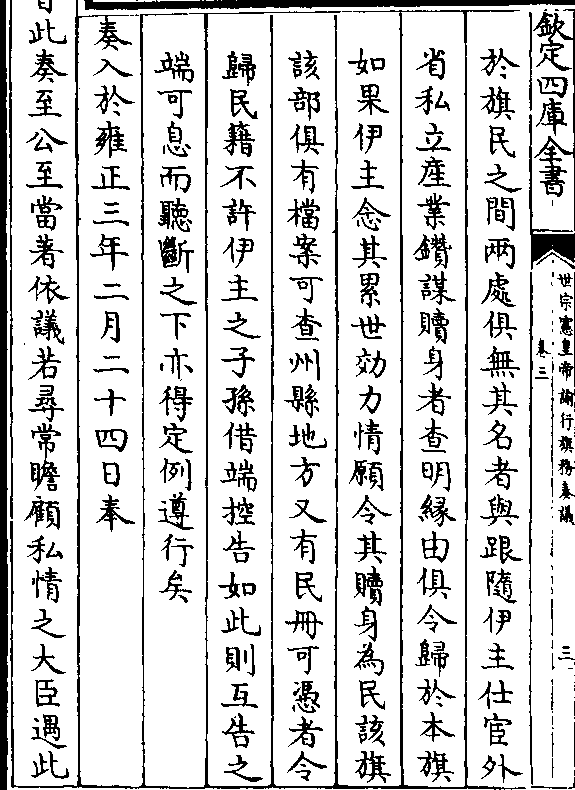 欽定四庫全書
世宗憲皇帝諭行旗務奏議
卷三
三
於旗民之間兩處俱無其名者與跟隨伊主仕宦外
省私立產業鑽謀贖身者查明緣由俱令歸於本旗
如果伊主念其累世効力情願令其贖身為民該旗
該部俱有檔案可查州縣地方又有民冊可憑者令
歸民籍不許伊主之子孫借端控告如此則互告之
端可息而聽斷之下亦得定例遵行矣
奏入於雍正三年二月二十四日奉
旨此奏至公至當著依議若尋常瞻顧私情之大臣遇此